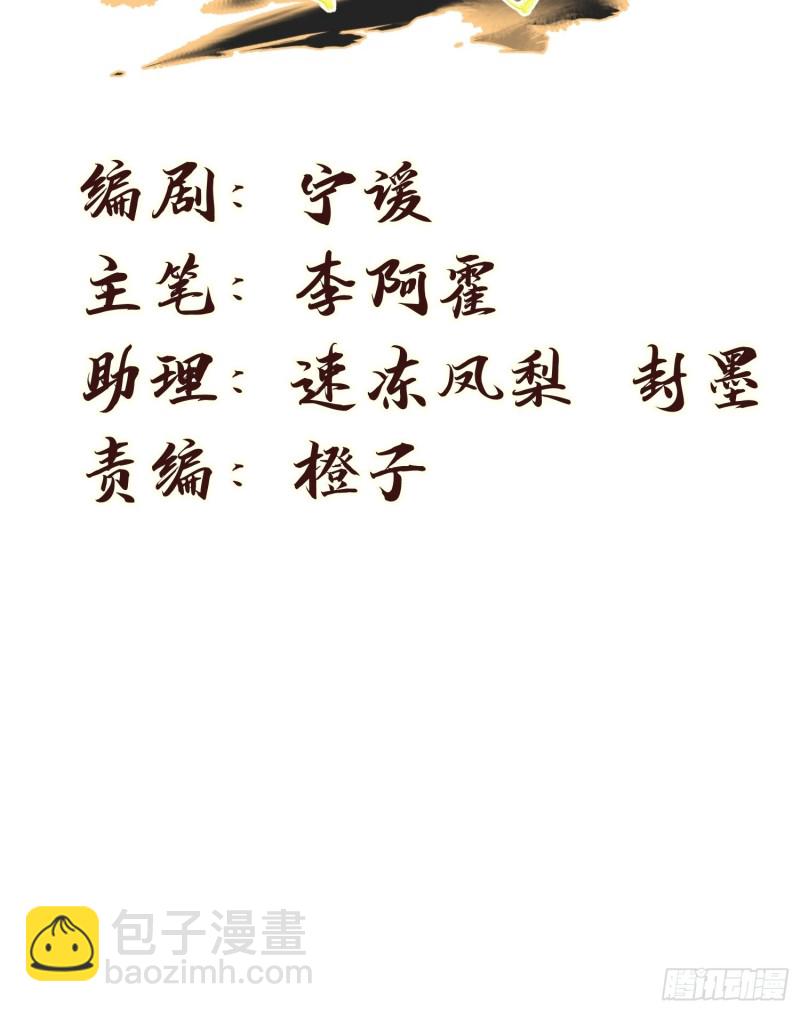 编剧：宁谖
主笔：李阿霍
助理：速冻凤梨 封墨
责编：橙子
包子漫畫
baozimh.com
腾讯动漫